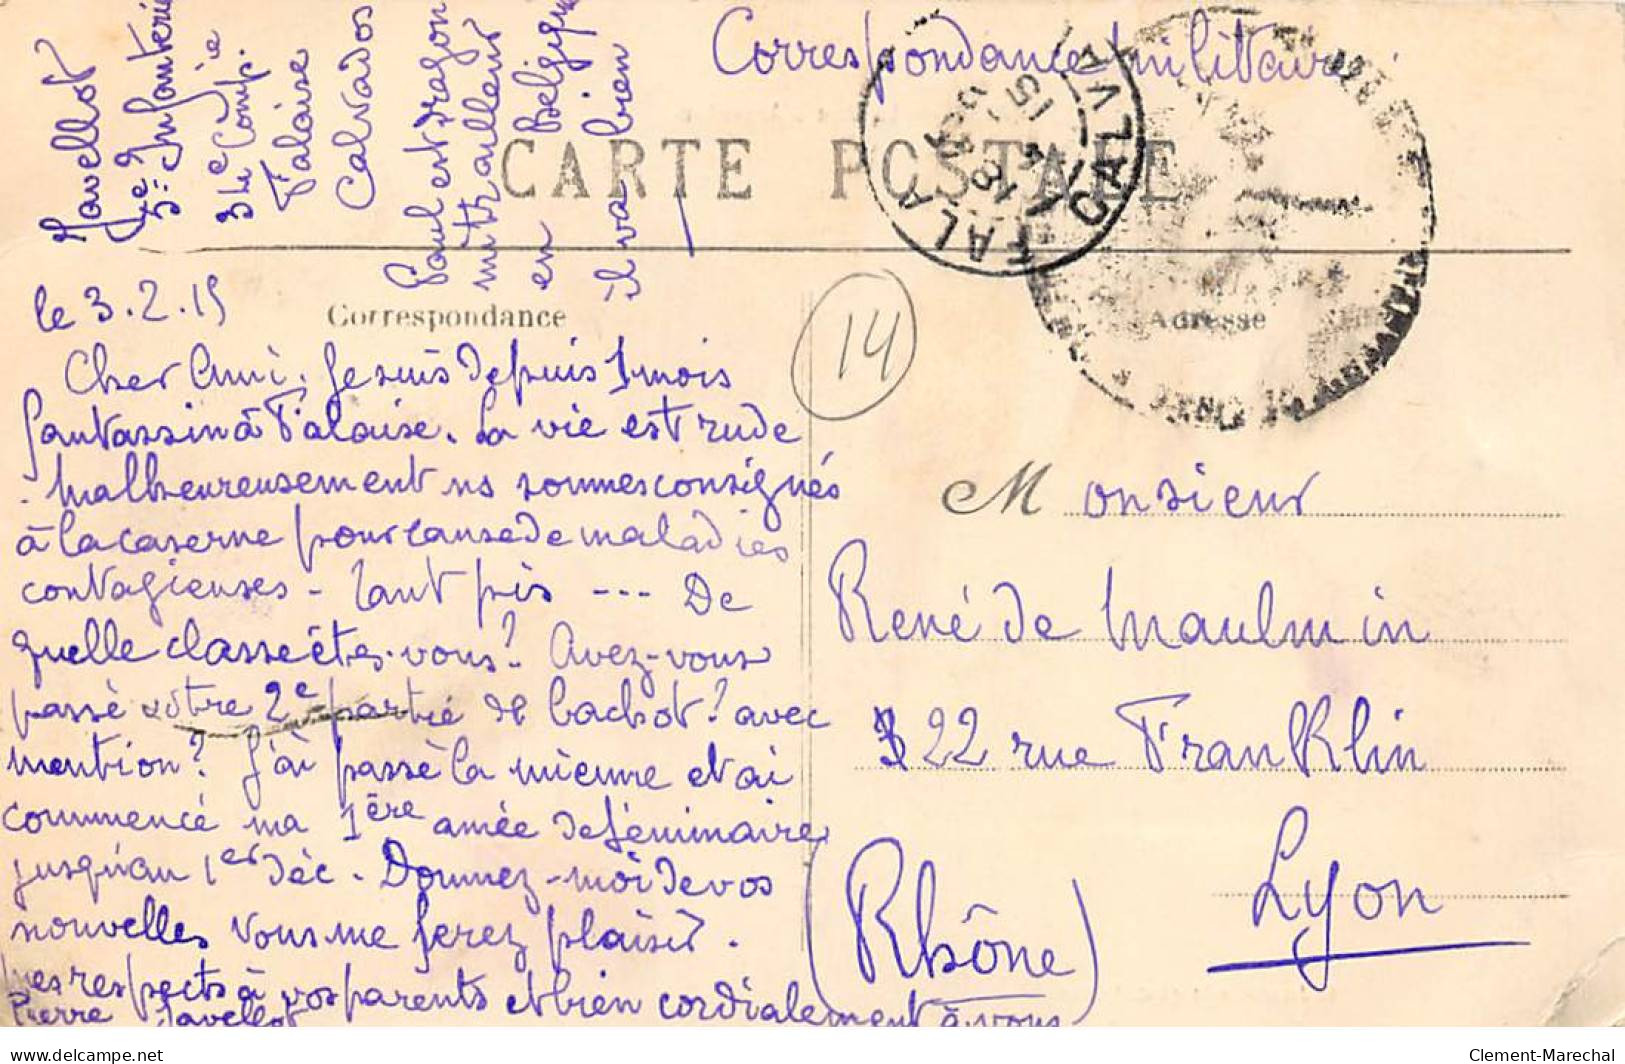 Correspondance militaire
CARTE POSTALE
Javellot
5e Infanterie
31e Comp.
Falaise
Calvados
Paul est dragon
mitrailleur
en Belgique
il va bien
FALAISE
CALVADOS
18
15
Correspondance
Adresse
14
le 3.2.15
Cher Ami, Je suis depuis 1 mois
fantassin à Falaise. La vie est rude
. Malheureusement ns sommes consignés
à la caserne pour cause de maladies
contagieuses - Tant pis --- De
quelle classe êtes-vous? Avez-vous
passé votre 2e partie de bachot? avec
mention? J'ai passé la mienne et ai
commencé ma 1ère année de Séminaire
jusqu'au 1er déc. Donnez-moi de vos
nouvelles vous me ferez plaisir.
Mes respects à vos parents et bien cordialement à vous
Pierre Javellot
Monsieur
René de Maulmin
22 rue Franklin
Lyon
(Rhône)
delcampe.net
Clement-Marechal